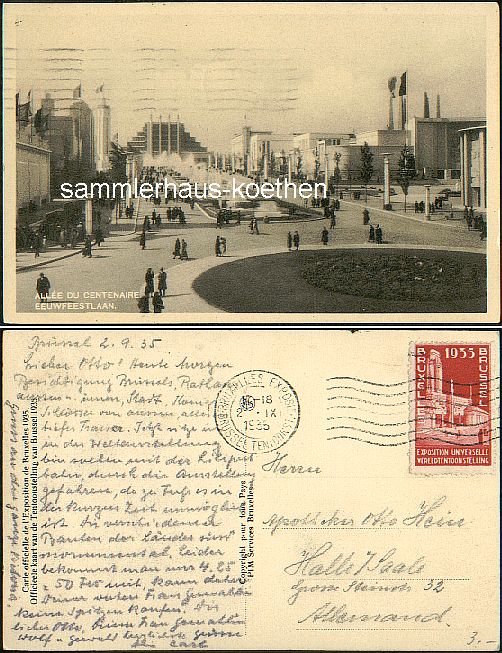 sammlerhaus-koethen
ALLÉE DU CENTENAIRE
EEUWFEESTLAAN.
Brüssel 2.9.35
Lieber Otto! Heute Morgen
Besichtigung Brüssel, Rathaus
aussen - innen, Stadt, König
Schlösser von aussen alles
tiefe Trauer. Jetzt sitze ich
in der Weltausstellung
bin soeben mit der
bahn, durch die Ausstellung
gefahren, da zu Fuss es in
der kurzen Zeit unmöglich
ist. Die verschiedenen
Bauten der Länder sind
monumental, leider
bekommt man nur 4.25
- 50 Frs mit, kann daher
keine Spitzen kaufen. Dir
lieber Otto, Deine Frau Gemahlin
herzliche Grüsse
Carte officielle de l'Exposition de Bruxelles 1935
Officieele kaart van de Tentoonstelling van Brussel 1935
Copyright pour tous Pays
PIM Services Bruxelles
BRUXELLES EXPOS
-18
2 IX
1935
BRUSSEL TENTOONST
BRUXELLES 1935 BRUSSEL
EXPOSITION UNIVERSELLE
WERELDTENTOONSTELLING
Herrn
Apotheker Otto Hein
Halle / Saale
Grosse Steinstr. 32
Allemand.
3.-